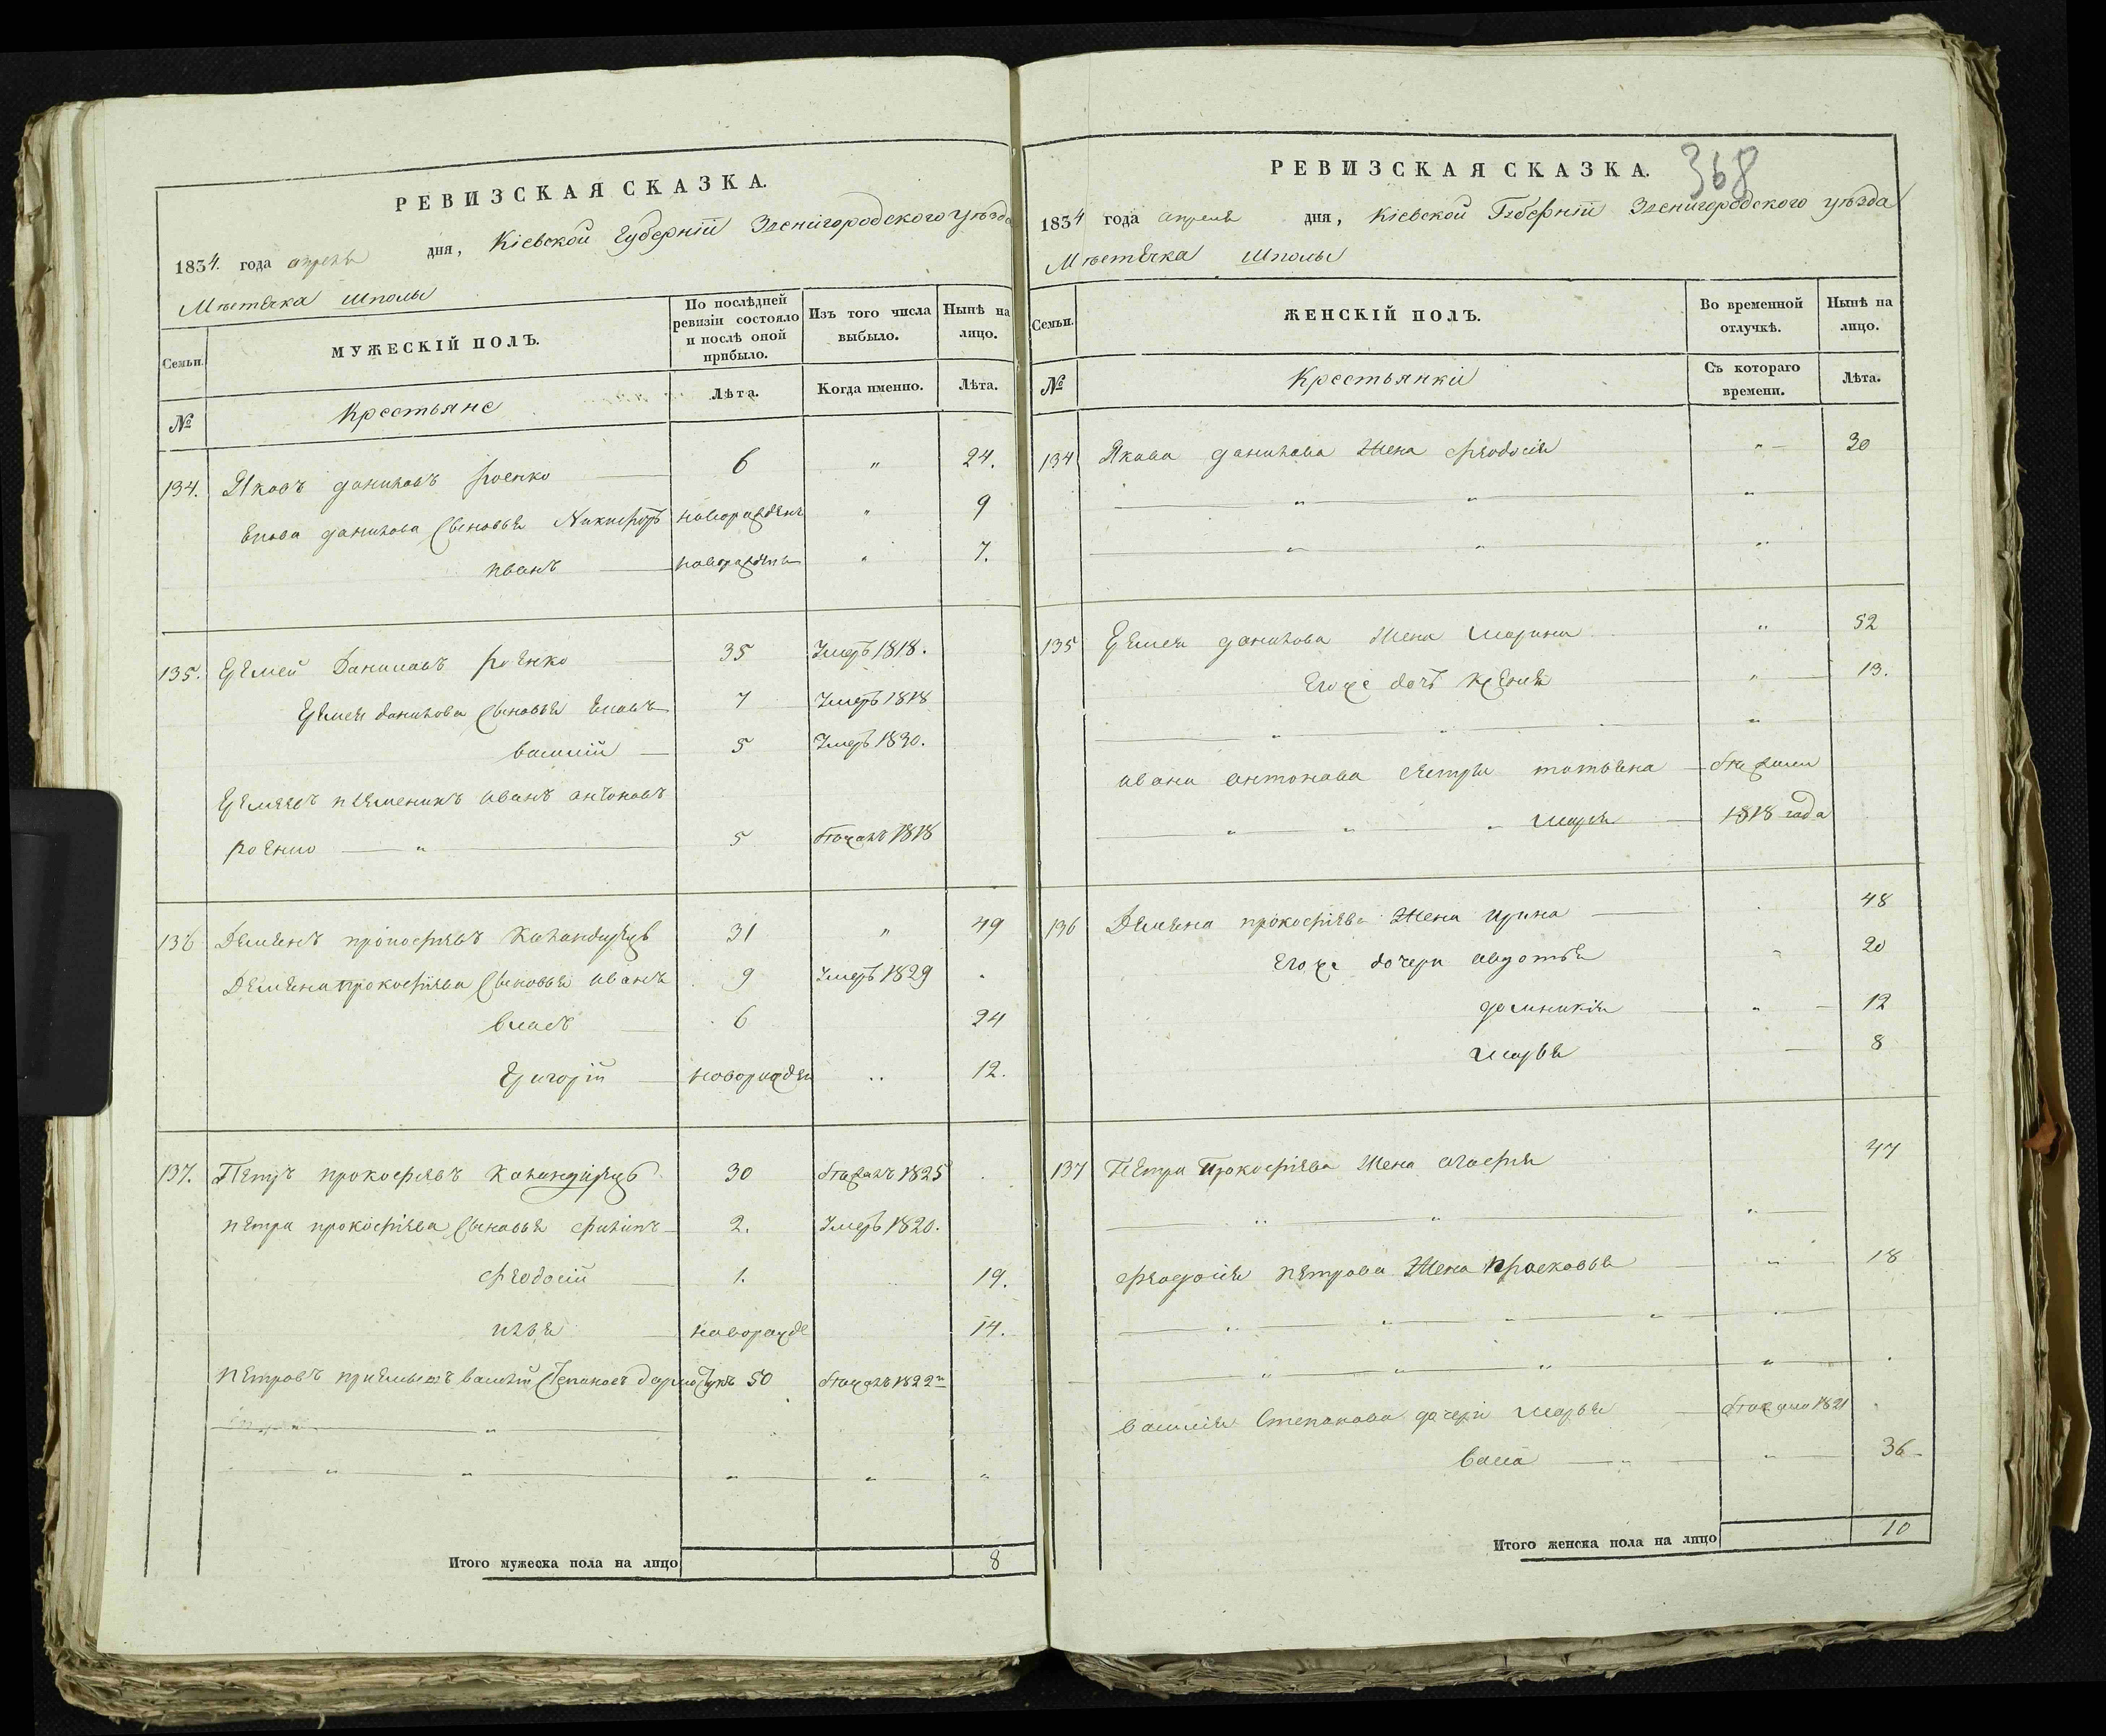 РЕВИЗСКАЯ СКАЗКА.
1834. года апреля дня, Кіевской Губерніи Звенигородского уѣзда
Мѣстечка Шполы
Семьи.
МУЖЕСКІЙ ПОЛЪ.
По послѣдней ревизіи состояло и послѣ оной прибыло.
Изъ того числа выбыло.
Нынѣ на лицо.
№
Крестьяне
Лѣта.
Когда именно.
Лѣта.
134. Яковъ даниловъ роенко 6 " 24.
данилова Сыновья Никифоръ новорожденъ " 9
иванъ новорожденъ " 7.
135. Еремей Даниловъ роенко 35 Умеръ 1818.
Еремея данилова Сыновья 7 Умеръ 1818
василій 5 Умеръ 1830.
Еремеевъ племеникъ иванъ антоновъ
роенко " 5 1818
136 Деменъ прокофіевъ 31 " 49
Демена прокофіева Сыновья иванъ 9 Умеръ 1829
власъ 6 24
Григорій новорожден 12.
137. Петръ прокофіевъ 30 1825
петра прокофіева Сыновья филипъ 2. Умеръ 1820.
феодосій 1. 19.
илья новорожде 14.
петровъ василій 50 1822
" " " " "
Итого мужеска пола на лицо 8
РЕВИЗСКАЯ СКАЗКА. 368
1834 года апреля дня, Кіевской Губерніи Звенигородского уѣзда
Мѣстечка Шполы
Семьи.
ЖЕНСКІЙ ПОЛЪ.
Во временной отлучкѣ.
Нынѣ на лицо.
№
Крестьянки
Съ котораго времени.
Лѣта.
134 Якова данилова Жена феодосія " 30
" " "
" " "
135 Еремея данилова Жена Марина " 52
Егоже дочь Ксенія " 13.
" " "
ивана антонова сестры татьяна
" " " Марія 1818 года
136 Демена прокофіева Жена ирина 48
Егоже дочери авдотья " 20
домникія " 12
Марья 8
137 Петра Прокофіева Жена агафія 47
" " "
феодосія петрова Жена Прасковья " 18
" " " " "
" " "
василія Степанова дочери Марья 1821
васса " 36
Итого женска пола на лицо 10